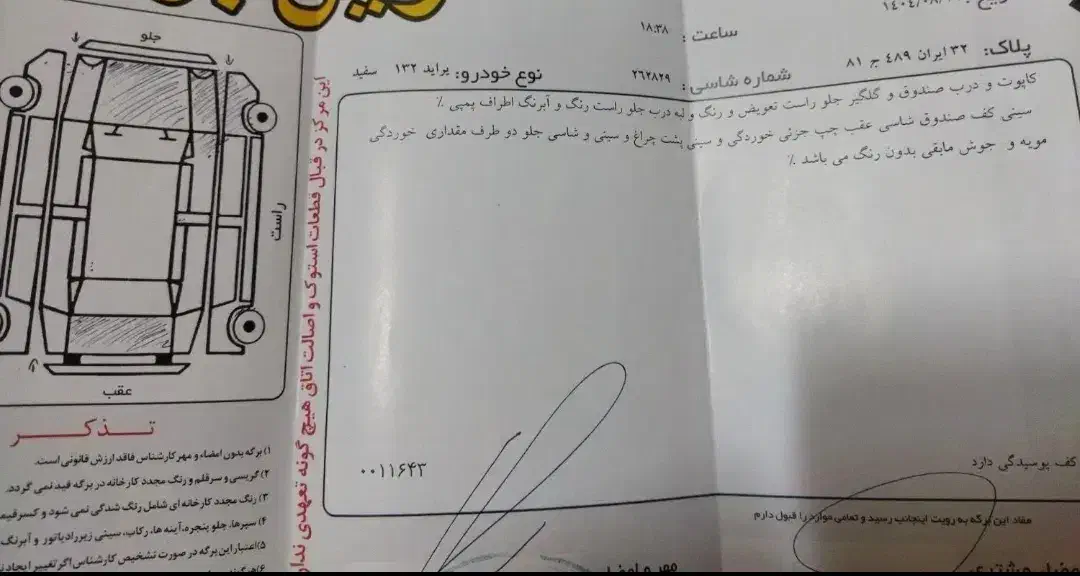 ساعت: ۱۸:۳۸
پلاک: ۳۲ ایران ۴۸۹ ج ۸۱
شماره شاسی: ۲۶۲۸۲۹
نوع خودرو: پراید ۱۳۲ سفید
کاپوت و درب صندوق و گلگیر جلو راست تعویض و رنگ و لبه درب جلو راست رنگ و آبرنگ اطراف پمپی ٪
سینی کف صندوق شاسی عقب چپ جزئی خوردگی و سینی پشت چراغ و سینی و شاسی جلو دو طرف مقداری خوردگی
مویه و جوش مابقی بدون رنگ می باشد ٪
کف پوسیدگی دارد
۰۰۱۱۶۴۳
مفاد این برگه به رویت اینجانب رسید و تمامی موارد را قبول دارم
این مرکز در قبال قطعات استوک و اصالت اتاق هیچ گونه تعهدی ندار
جلو
راست
عقب
تذکر
۱) برگه بدون امضاء و مهر کارشناس فاقد ارزش قانونی است.
۲) گریسی و سرقلم و رنگ مجدد کارخانه در برگه قید نمی گردد.
۳) رنگ مجدد کارخانه ای شامل رنگ شدگی نمی شود و کسر قیمـ
۴) سپرها، جلو پنجره، آینه ها، رکاب، سینی زیر رادیاتور و آبرنگ
۵) اعتبار این برگه در صورت تشخیص کارشناس اگر تغییر ایجاد